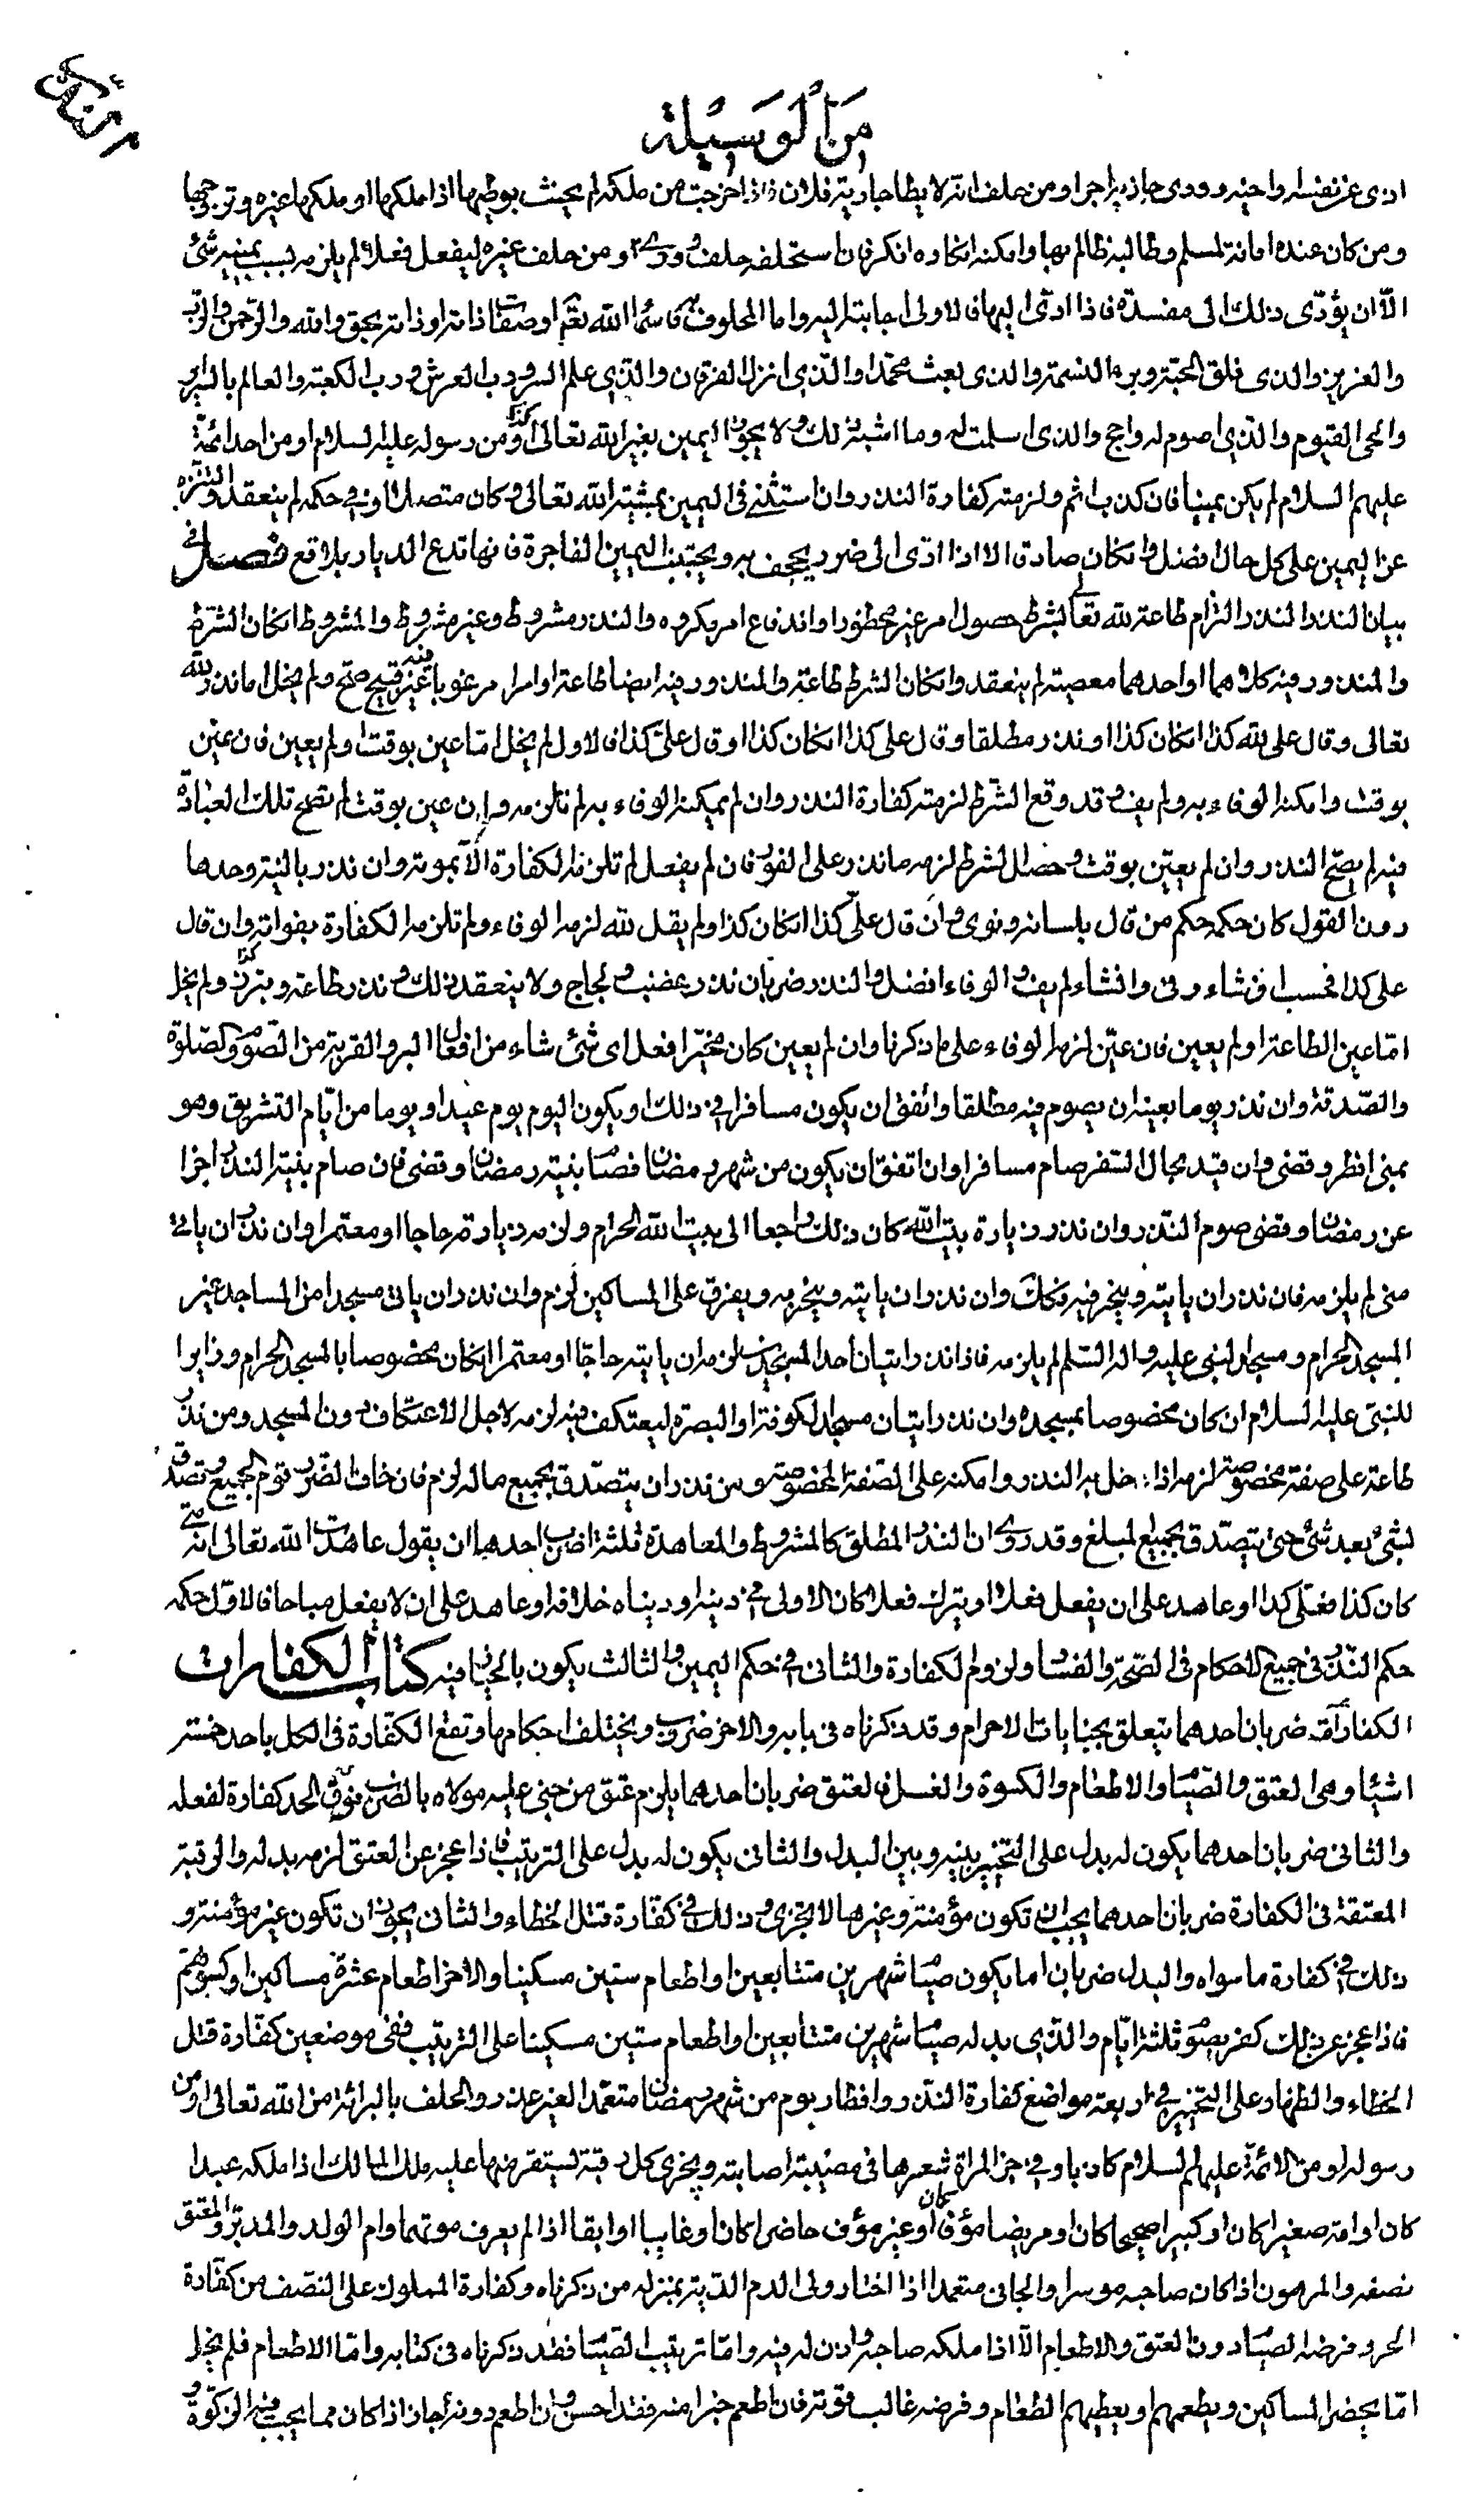 من الوسيلة
ومن كان عنده امانة لمسلم وطالبه ظالم بها وامكنه انكاره انكر فان استحلفه حلف وورى ومن حلف غيره ليفعل فعلا لم يلزمه بسبب يمينه شئ
الا ان يؤدى ذلك الى مفسدة فاذا ادى اليها فالاولى اجابته اليه واما المحلوف به فاسماء الله تعالى او صفات ذاته او ذاته بحق والله والرحمن والرب
والعزيز والذى فلق الحبة وبرء النسمة والذى بعث محمدا والذى انزل الفرقان والذى علم السر ورب العرش ورب الكعبة والعالم بالسراير
والحى القيوم والذى اصوم له واحج والذى اسلمت له وما اشبه ذلك ولا يجوز اليمين بغير الله تعالى ومن رسوله عليه السلام او من احد ائمة
عليهم السلام لم يكن يمينا فان كذب اثم ولزمته كفارة النذر وان استثنى فى اليمين بمشية الله تعالى وكان متصلا او فى حكمه لم ينعقد والتنزه
عن اليمين على كل حال افضل وان كان صادقا الا اذا ادى الى ضرر يجحف به ويجتنب اليمين الفاجرة فانها تدع الديار بلاقع فصل فى
بيان النذر النذر التزام طاعة لله تعالى بشرط حصول امر غير محظور او اندفاع امر مكروه والنذر مشروط وغير مشروط والمشروط ان كان الشرط
والمنذور فيه كلاهما او احدهما معصية لم ينعقد وان كان الشرط طاعة والمنذور فيه ايضا طاعة او امرا مرغوبا فيه غير قبيح صح ولم يخل اما نذر لله
تعالى وقال على لله كذا ان كان كذا او نذر مطلقا وقال على كذا ان كان كذا او قال على كذا فالاول لم يخل اما عين بوقت او لم يعين فان عين
بوقت وامكنه الوفاء به ولم يف وقد وقع الشرط لزمته كفارة النذر وان لم يمكنه الوفاء به لم تلزمه وان عين بوقت لم تصح تلك العبادة
فيه لم يصح النذر وان لم يعين بوقت وحصل الشرط لزمه ما نذر على الفور فان لم يفعل لم تلزمه الكفارة الا بموته وان نذر بالنية وحدها
دون القول كان حكمه حكم من قال بلسانه ونوى وان قال على كذا ان كان كذا ولم يقل لله لزمه الوفاء ولم تلزمه الكفارة بفواته وان قال
على كذا فحسب ان شاء وفى وان شاء لم يف والوفاء افضل والنذر ضربان نذر غضب ولجاج ولا ينعقد ذلك ونذر طاعة وتبرر ولم يخل
اما عين الطاعة او لم يعين فان عين لزمه الوفاء على ما ذكرنا وان لم يعين كان مخيرا فعل اى شئ شاء من افعال البر والقربة من الصوم والصلوة
والصدقة وان نذر يوما بعينه ان يصوم فيه مطلقا واتفق ان يكون مسافرا فى ذلك او يكون اليوم يوم عيد او يوما من ايام التشريق وهو
بمنى افطر وقضى وان قيد بحال السفر صام مسافرا وان اتفق ان يكون من شهر رمضان فصام بنية رمضان وقضى فان صام بنية النذر اجزا
عن رمضان وقضى صوم النذر وان نذر زيارة بيت الله كان ذلك راجعا الى بيت الله الحرام ولزمه زيارته حاجا او معتمرا وان نذر ان ياتى
منى لم يلزمه فان نذر ان ياتيه وينحر فيه فكك وان نذر ان ياتيه وينحر به ويفرق على المساكين لزم وان نذر ان ياتى مسجدا من المساجد غير
المسجد الحرام ومسجد النبى عليه واله السلم لم يلزمه فاذا نذر اتيان احد المسجدين لزمه ان ياتيه حاجا او معتمرا ان كان مخصوصا بالمسجد الحرام وزايرا
للنبى عليه السلام ان كان مخصوصا بمسجده وان نذر اتيان مسجد الكوفة او البصرة ليعتكف فيه لزمه لاجل الاعتكاف دون المسجد ومن نذر
طاعة على صفة مخصوصة لزمه اذا دخل به النذر وامكنه على الصفة المخصوصة ومن نذر ان يتصدق بجميع ماله لزم فان خاف الضرر قوم الجميع وتصدق
بشئ بعد شئ حتى يتصدق بجميع المبلغ وقد روى ان النذر المطلق كالمشروط والمعاهدة ثلثة اضرب احدها ان يقول عاهدت الله تعالى انه متى
كان كذا فعلى كذا او عاهد على ان يفعل فعلا او يترك فعلا كان الاولى فى دينه او دنياه خلافه او عاهد على ان لا يفعل مباحا فالاول حكمه
حكم النذر فى جميع الاحكام فى الصحة والفساد ولزوم الكفارة والثانى فى حكم اليمين والثالث يكون بالخيار فيه كتاب الكفارات
الكفارة ضربان احدهما يتعلق بجنايات الاحرام وقد ذكرناه فى بابه والاخر ضروب ويختلف احكامها وتقع الكفارة فى الكل باحد خمسة
اشياء وهى العتق والصيام والاطعام والكسوة والغسل فالعتق ضربان احدهما يلزم عتق من جنى عليه مولاه بالضرب فوق الحد كفارة لفعله
والثانى ضربان احدهما يكون له بدل على التخيير بينه وبين البدل والثانى يكون له بدل على الترتيب فاذا عجز عن العتق لزمه بدله والرقبة
المعتقة فى الكفارة ضربان احدهما يجب ان تكون مؤمنة وغيرها لا تجزى وذلك فى كفارة قتل الخطاء والثانى يجوز ان تكون غير مؤمنة و
ذلك فى كفارة ما سواه والبدل ضربان اما يكون صيام شهرين متتابعين او اطعام ستين مسكينا والاخر اطعام عشرة مساكين او كسوتهم
فاذا عجز عن ذلك كفر بصوم ثلثة ايام والذى بدله صيام شهرين متتابعين او اطعام ستين مسكينا على الترتيب ففى موضعين كفارة قتل
الخطاء والظهار وعلى التخيير فى اربعة مواضع كفارة النذر وافطار يوم من شهر رمضان متعمدا لغير عذر والحلف بالبرائة من الله تعالى او من
رسوله او من الائمة عليهم السلام كاذبا وفى جز المراة شعرها فى مصيبة اصابته ويجزى كل رقبة يستقر منها عليه ملك المالك اذا ملكه عبدا
كان او امة صغيرا كان او كبيرا صحيحا كان او مريضا مؤفا كان او غير مؤف حاضرا كان او غايبا او ابقا اذا لم يعرف موتهما وام الولد والمدبر والمعتق
نصفه والمرهون اذا كان صاحبه موسرا والجانى متعمدا اذا اختار ولى الدم الدية بمنزلة من ذكرناه وكفارة المملوك على النصف من كفارة
الحر وفرضه الصيام دون العتق والاطعام الا اذا ملكه صاحبه واذن له فيه واما ترتيب الصيام فقد ذكرناه فى كتابه واما الاطعام فلم يخل
اما يحضر المساكين ويطعمهم او يعطيهم الطعام وفرضه غالب قوته فان اطعم خيرا منه فقد احسن وان اطعم دونه جاز اذا كان مما يجب فيه الزكوة و